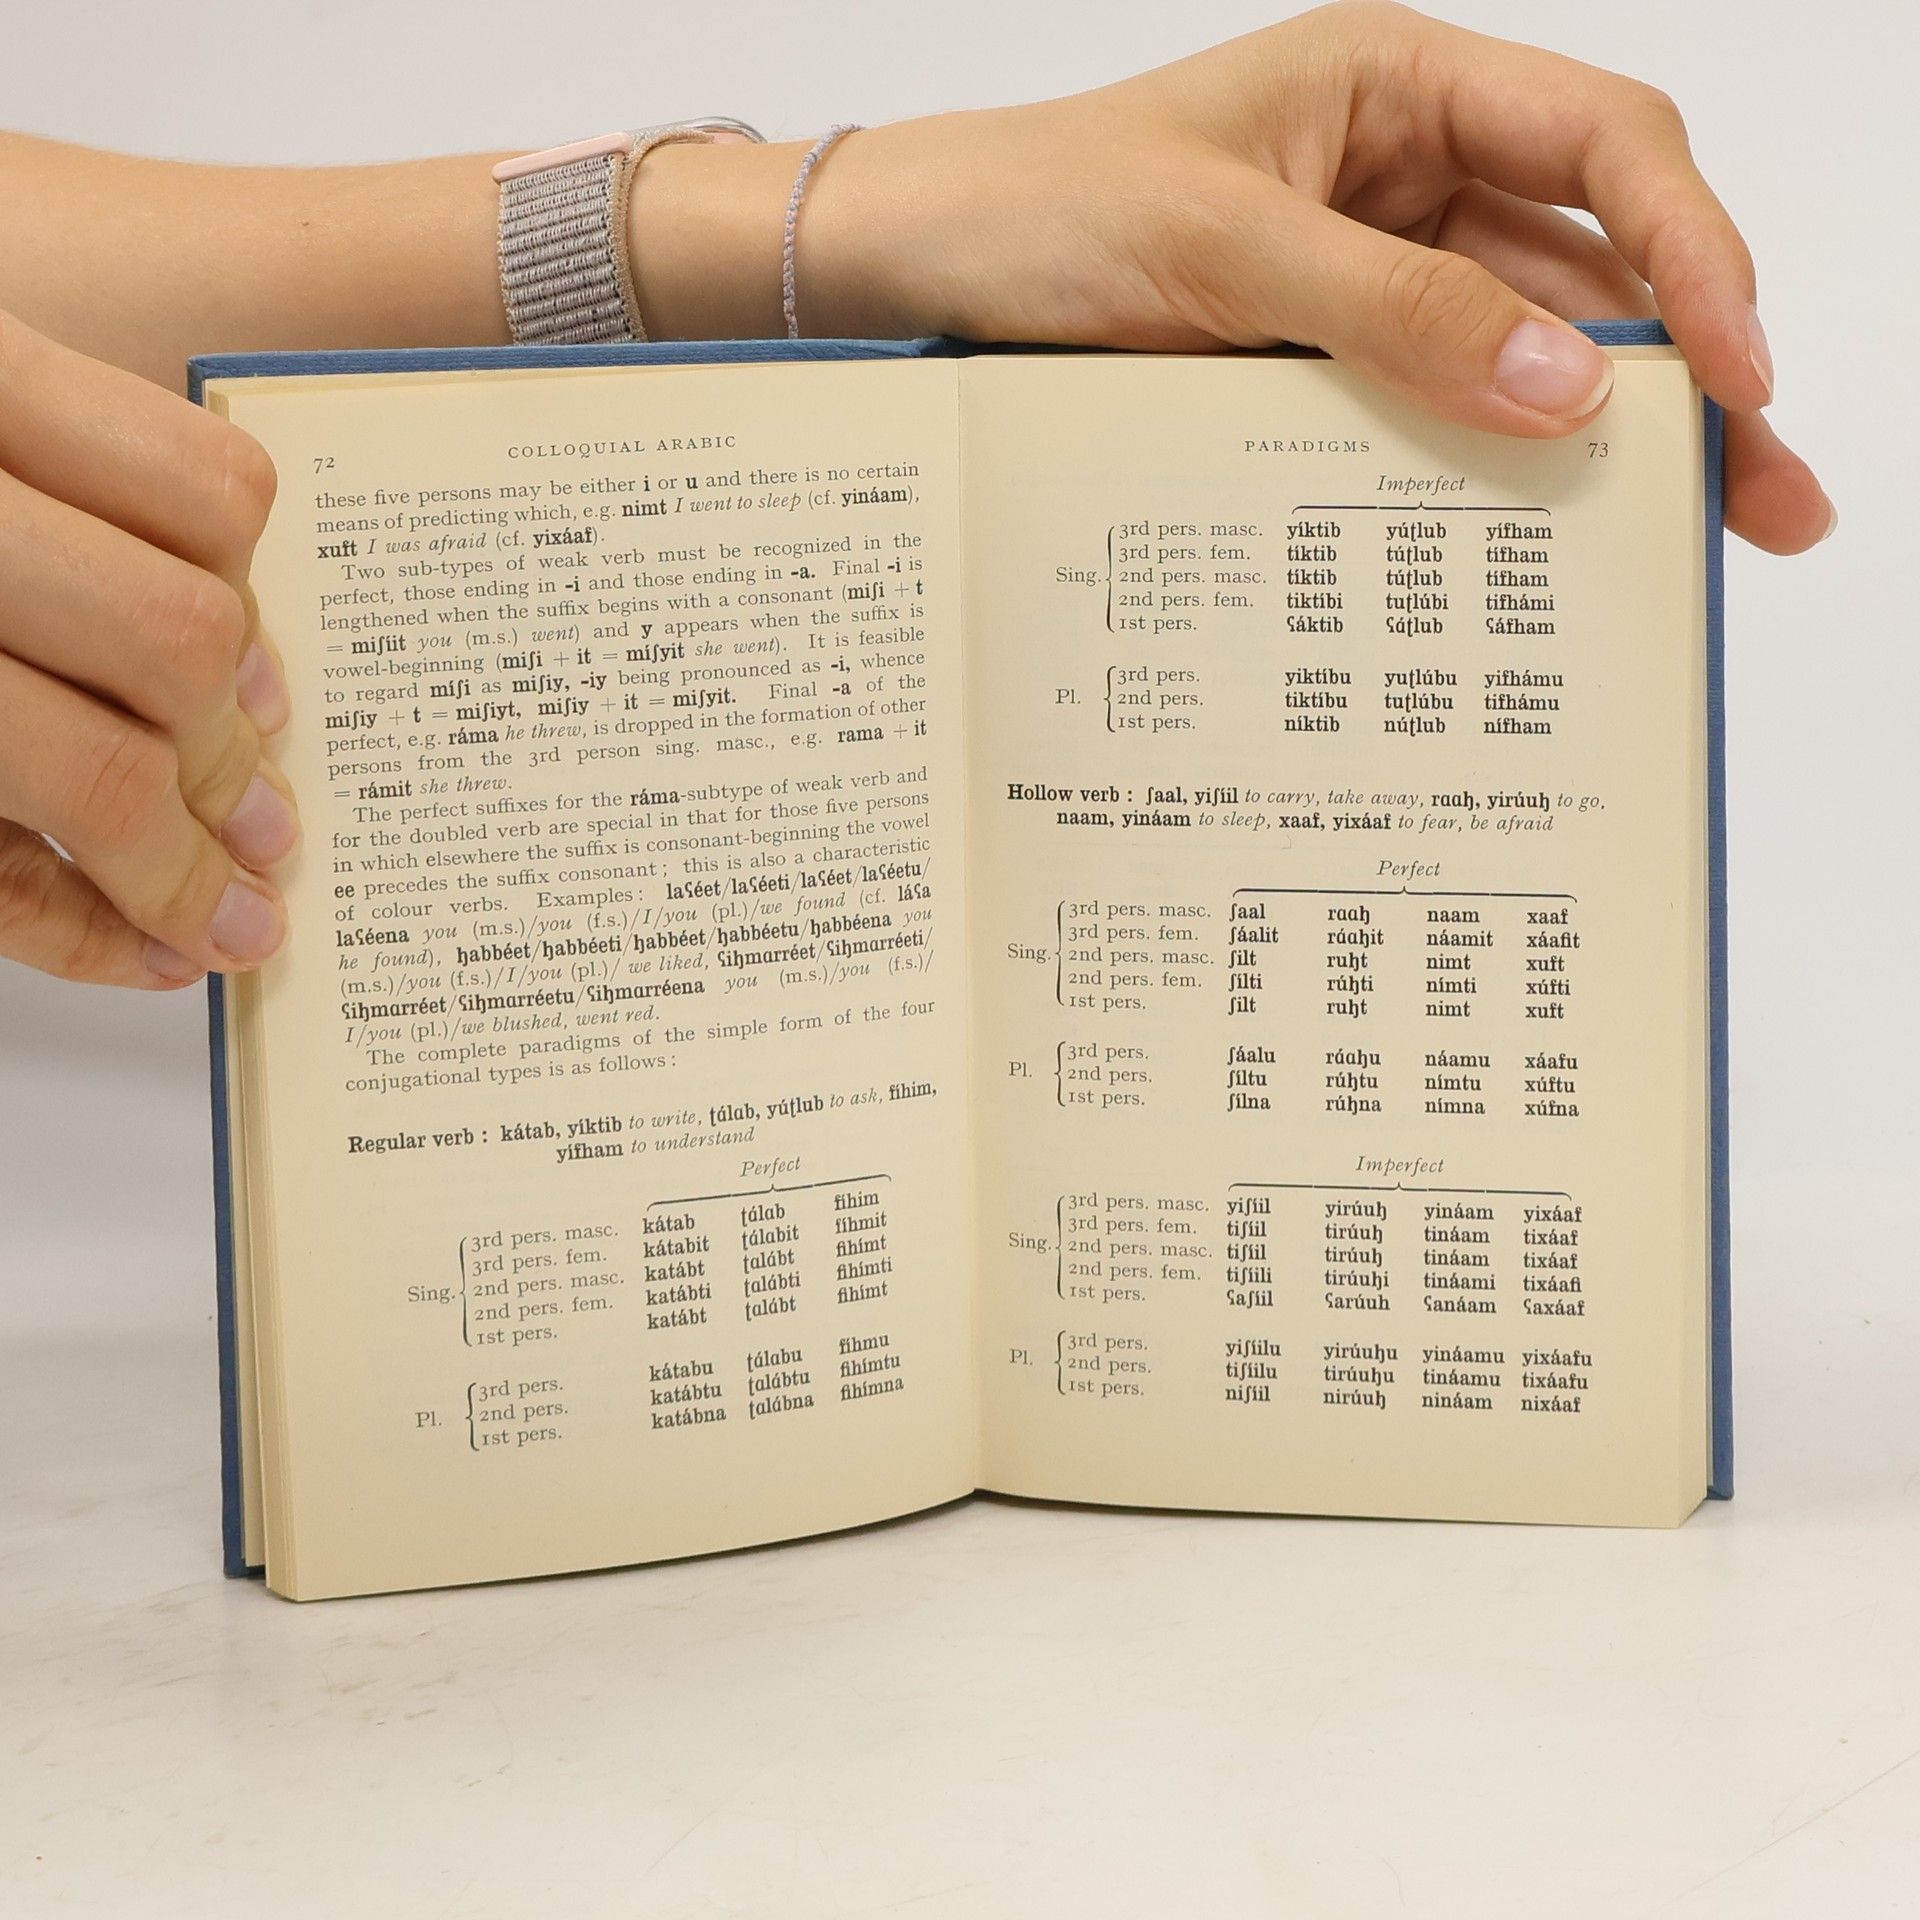 72
COLLOQUIAL ARABIC
these five persons may be either i or u and there is no certain
means of predicting which, e.g. nimt I went to sleep (cf. yináam),
xuft I was afraid (cf. yixáaf).
Two sub-types of weak verb must be recognized in the
perfect, those ending in -i and those ending in -a. Final -i is
lengthened when the suffix begins with a consonant (miʃi + t
= miʃíit you (m.s.) went) and y appears when the suffix is
vowel-beginning (miʃi + it = míʃyit she went). It is feasible
to regard míʃi as miʃiy, -iy being pronounced as -i, whence
miʃiy + t = miʃiyt, miʃiy + it = miʃyit. Final -a of the
perfect, e.g. ráma he threw, is dropped in the formation of other
persons from the 3rd person sing. masc., e.g. rama + it
= rámit she threw.
The perfect suffixes for the ráma-subtype of weak verb and
for the doubled verb are special in that for those five persons
in which elsewhere the suffix is consonant-beginning the vowel
ee precedes the suffix consonant; this is also a characteristic
of colour verbs. Examples: laʕéet/laʕéeti/laʕéet/laʕéetu/
laʕéena you (m.s.)/you (f.s.)/I/you (pl.)/we found (cf. láʕa
he found), ḥabbéet/ḥabbéeti/ḥabbéet/ḥabbéetu/ḥabbéena you
(m.s.)/you (f.s.)/I/you (pl.)/ we liked, ʕiḥmɑrréet/ʕiḥmɑrréeti/
ʕiḥmɑrréet/ʕiḥmɑrréetu/ʕiḥmɑrréena you (m.s.)/you (f.s.)/
I/you (pl.)/we blushed, went red.
The complete paradigms of the simple form of the four
conjugational types is as follows:
Regular verb: kátab, yíktib to write, ṭálɑb, yúṭlub to ask, fíhim,
yífham to understand
Perfect
3rd pers. masc. kátab ṭálɑb fíhim
3rd pers. fem. kátabit ṭálɑbit fíhmit
Sing. 2nd pers. masc. katábt ṭɑlábt fihímt
2nd pers. fem. katábti ṭɑlábti fihímti
1st pers. katábt ṭɑlábt fihímt
3rd pers. kátabu ṭálɑbu fíhmu
Pl. 2nd pers. katábtu ṭɑlábtu fihímtu
1st pers. katábna ṭɑlábna fihímna
PARADIGMS
73
Imperfect
3rd pers. masc. yíktib yúṭlub yífham
3rd pers. fem. tíktib túṭlub tífham
Sing. 2nd pers. masc. tíktib túṭlub tífham
2nd pers. fem. tiktíbi tuṭlúbi tifhámi
1st pers. ʕáktib ʕáṭlub ʕáfham
3rd pers. yiktíbu yuṭlúbu yifhámu
Pl. 2nd pers. tiktíbu tuṭlúbu tifhámu
1st pers. níktib núṭlub nífham
Hollow verb: ʃaal, yiʃíil to carry, take away, rɑɑḥ, yirúuḥ to go,
naam, yináam to sleep, xaaf, yixáaf to fear, be afraid
Perfect
3rd pers. masc. ʃaal rɑɑḥ naam xaaf
3rd pers. fem. ʃáalit ráɑḥit náamit xáafit
Sing. 2nd pers. masc. ʃilt ruḥt nimt xuft
2nd pers. fem. ʃílti rúḥti nímti xúfti
1st pers. ʃilt ruḥt nimt xuft
3rd pers. ʃáalu ráɑḥu náamu xáafu
Pl. 2nd pers. ʃíltu rúḥtu nímtu xúftu
1st pers. ʃílna rúḥna nímna xúfna
Imperfect
3rd pers. masc. yiʃíil yirúuḥ yináam yixáaf
3rd pers. fem. tiʃíil tirúuḥ tináam tixáaf
Sing. 2nd pers. masc. tiʃíil tirúuḥ tináam tixáaf
2nd pers. fem. tiʃíili tirúuḥi tináami tixáafi
1st pers. ʕaʃíil ʕarúuh ʕanáam ʕaxáaf
3rd pers. yiʃíilu yirúuḥu yináamu yixáafu
Pl. 2nd pers. tiʃíilu tirúuḥu tináamu tixáafu
1st pers. niʃíil nirúuḥ nináam nixáaf